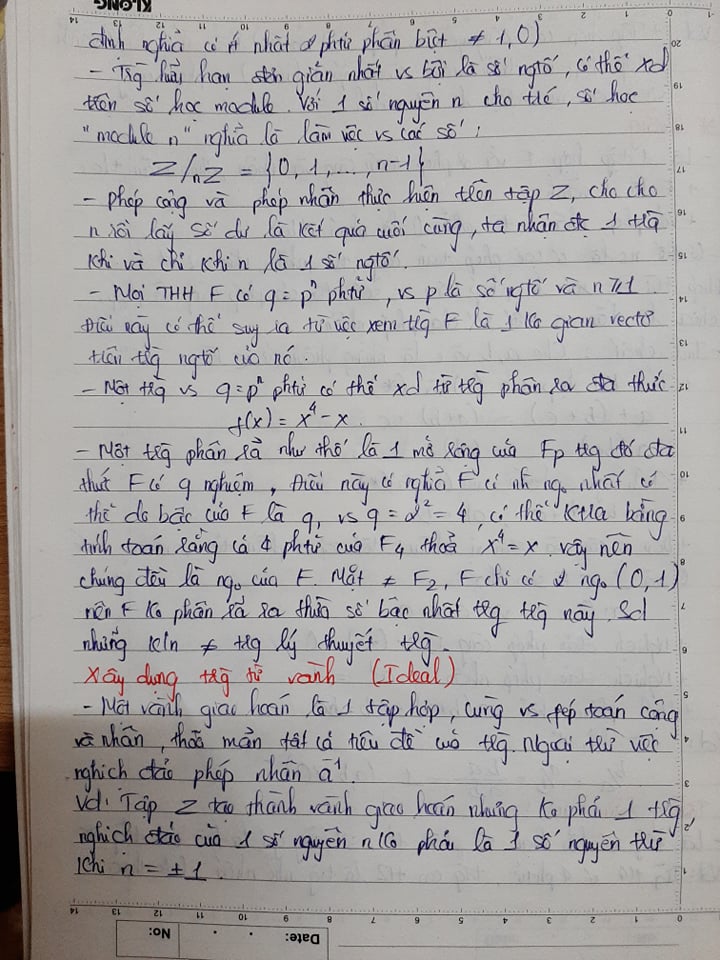 KLONG
định nghĩa có ít nhất 2 phtử phân biệt ≠ 1,0)
- Trg hữu hạn đơn giản nhất vs bội là số ngtố, có thể xd
trên số học module. Với 1 số nguyên n cho trc, số học
"module n" nghĩa là làm việc vs các số:
Z/nZ = {0, 1, ..., n-1}
- phép cộng và phép nhân thực hiện trên tập Z, chо cho
n rồi lấy số dư là kết quả cuối cùng, ta nhận đc 1 trg
khi và chỉ khi n là 1 số ngtố.
- Mọi THH F có q = pⁿ phtử, vs p là số ngtố và n ≥ 1
Điều này có thể suy ra từ việc xem trg F là 1 ko gian vectơ
trên trg ngtố của nó.
- Một trg vs q = pⁿ phtử có thể xd từ trg phân rã đa thức
f(x) = x⁴ - x.
- Một trg phân rã như thế là 1 mở rộng của Fp trg đó đa
thức F có q nghiệm, Điều này có nghĩa F có nh ngo nhất có
thể do bậc của F là q, vs q = 2² = 4, có thể ktra bằng
tính toán rằng cả 4 phtử của F₄ thoả x⁴ = x. vậy nên
chúng đều là ngo của F. Mặt ≠ F₂, F chỉ có 2 ngo (0,1)
nên F ko phân rã ra thừa số bậc nhất trg trg này. Sd
những kn ≠ trg lý thuyết trg.
Xây dựng trg từ vành (Ideal)
- Một vành giao hoán là 1 tập hợp, cùng vs fép toán cộng
và nhân, thoả mãn tất cả tiên đề của trg. Ngoại trừ việc
nghịch đảo phép nhân a⁻¹.
Vd: Tập Z tạo thành vành giao hoán nhưng ko phải 1 trg,
nghịch đảo của 1 số nguyên n ko phải là 1 số nguyên trừ
khi n = ±1.
No:
Date: